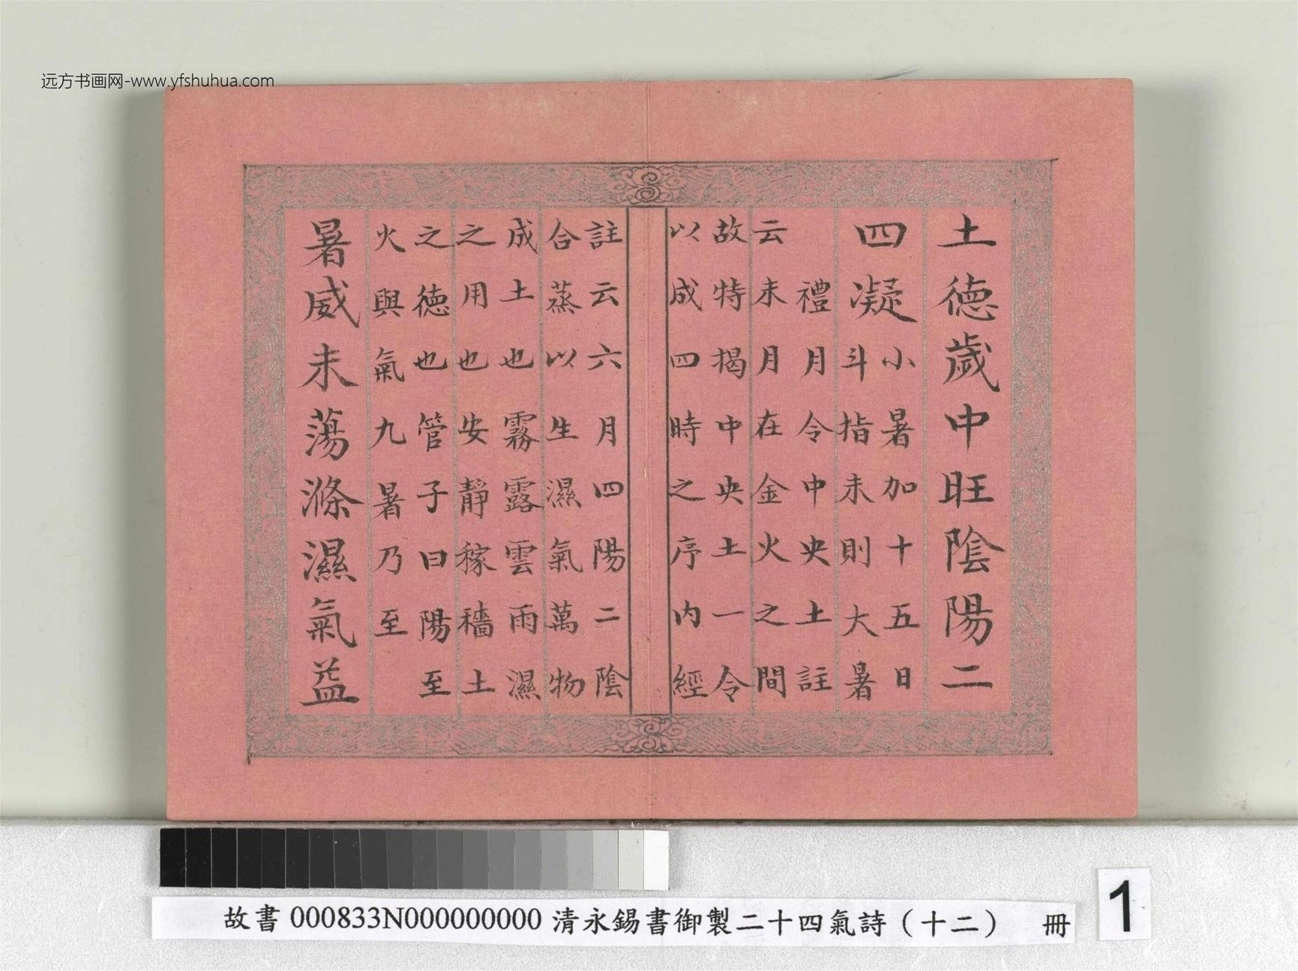 远方书画网-www.yfshuhua.com
土德歲中旺陰陽二
四凝小暑加十五日
斗指未則大暑
禮月令中央土註
云未月在金火之間
故特揭中央土一令
以成四時之序內經
註云六月四陽二陰
合蒸以生濕氣萬物
成土也霧露雲雨濕
之用也安靜稼穡土
之德也管子曰陽至
火與氣九暑乃至
暑威未蕩滌濕氣益
故書 000833N000000000 清永錫書御製二十四氣詩（十二） 冊
1